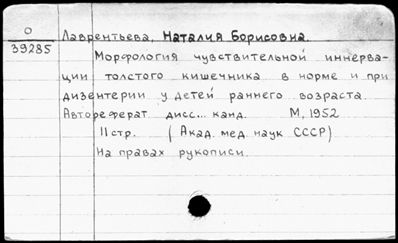 О
39285
Лаврентьева, Наталия Борисовна.
Морфология чувствительной иннерва-
ции толстого кишечника в норме и при
дизентерии у детей раннего возраста.
Автореферат дисс... канд. М, 1952
11 стр. (Акад. мед. наук СССР)
На правах рукописи.